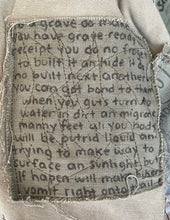 grave do
you have grave ready
receipt you do no
to built it an hide it
no built next another
you can got bond to
when you guts turn to
water in dirt an
feet all you body
will be putrid liquid an
trying to make way to
surface an sunlight, but
if hapen will make
vomit right onto